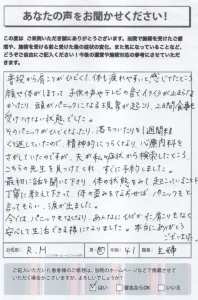 あなたの声をお聞かせください!
この度は ご来院いただき誠にありがとうございます。当院で施術を受けたご感
想や、施術を受ける前と受けた後の症状の変化、また気になっていることなど、
どうぞご自由にご記入ください!今後の運営や施術対応の参考にさせていただ
きます。
普段から肩こりがひどくて、体も疲れやすいと感じてたところ
腕や体がしびれて 子供の声やテレビの音がイライラが止まらな
かったり、頭がパニックになる現象が起こり、2日間食事も
受け付けない状態でした。
そのパニックがひどくなったり、落ちついたりを1週間程
くり返していたので、精神的にもつらくなり、心療内科を
さがしていたのですが、夫が私の症状から検索したところ
こちらの先生を見つけてくれ、すぐに予約しました。
最初に話を聞いて下さり、体の状態をみて
丁寧に教えて下さって、体の歪みをなおせば、パニックも
言ってもらい、涙が出ました。
今ではパニックもなくなり、あんなにひどかった肩こりもなく
安心して生活できる様になりました。本当にありがとう
ございます。
お名前
R.M
男
女
年齢
41
職業
主婦
ご記入いただいた患者様のご感想は、当院のホームページなどで掲載させて
いただく場合がございますが、よろしいでしょうか?
はい
匿名ならOK
いいえ